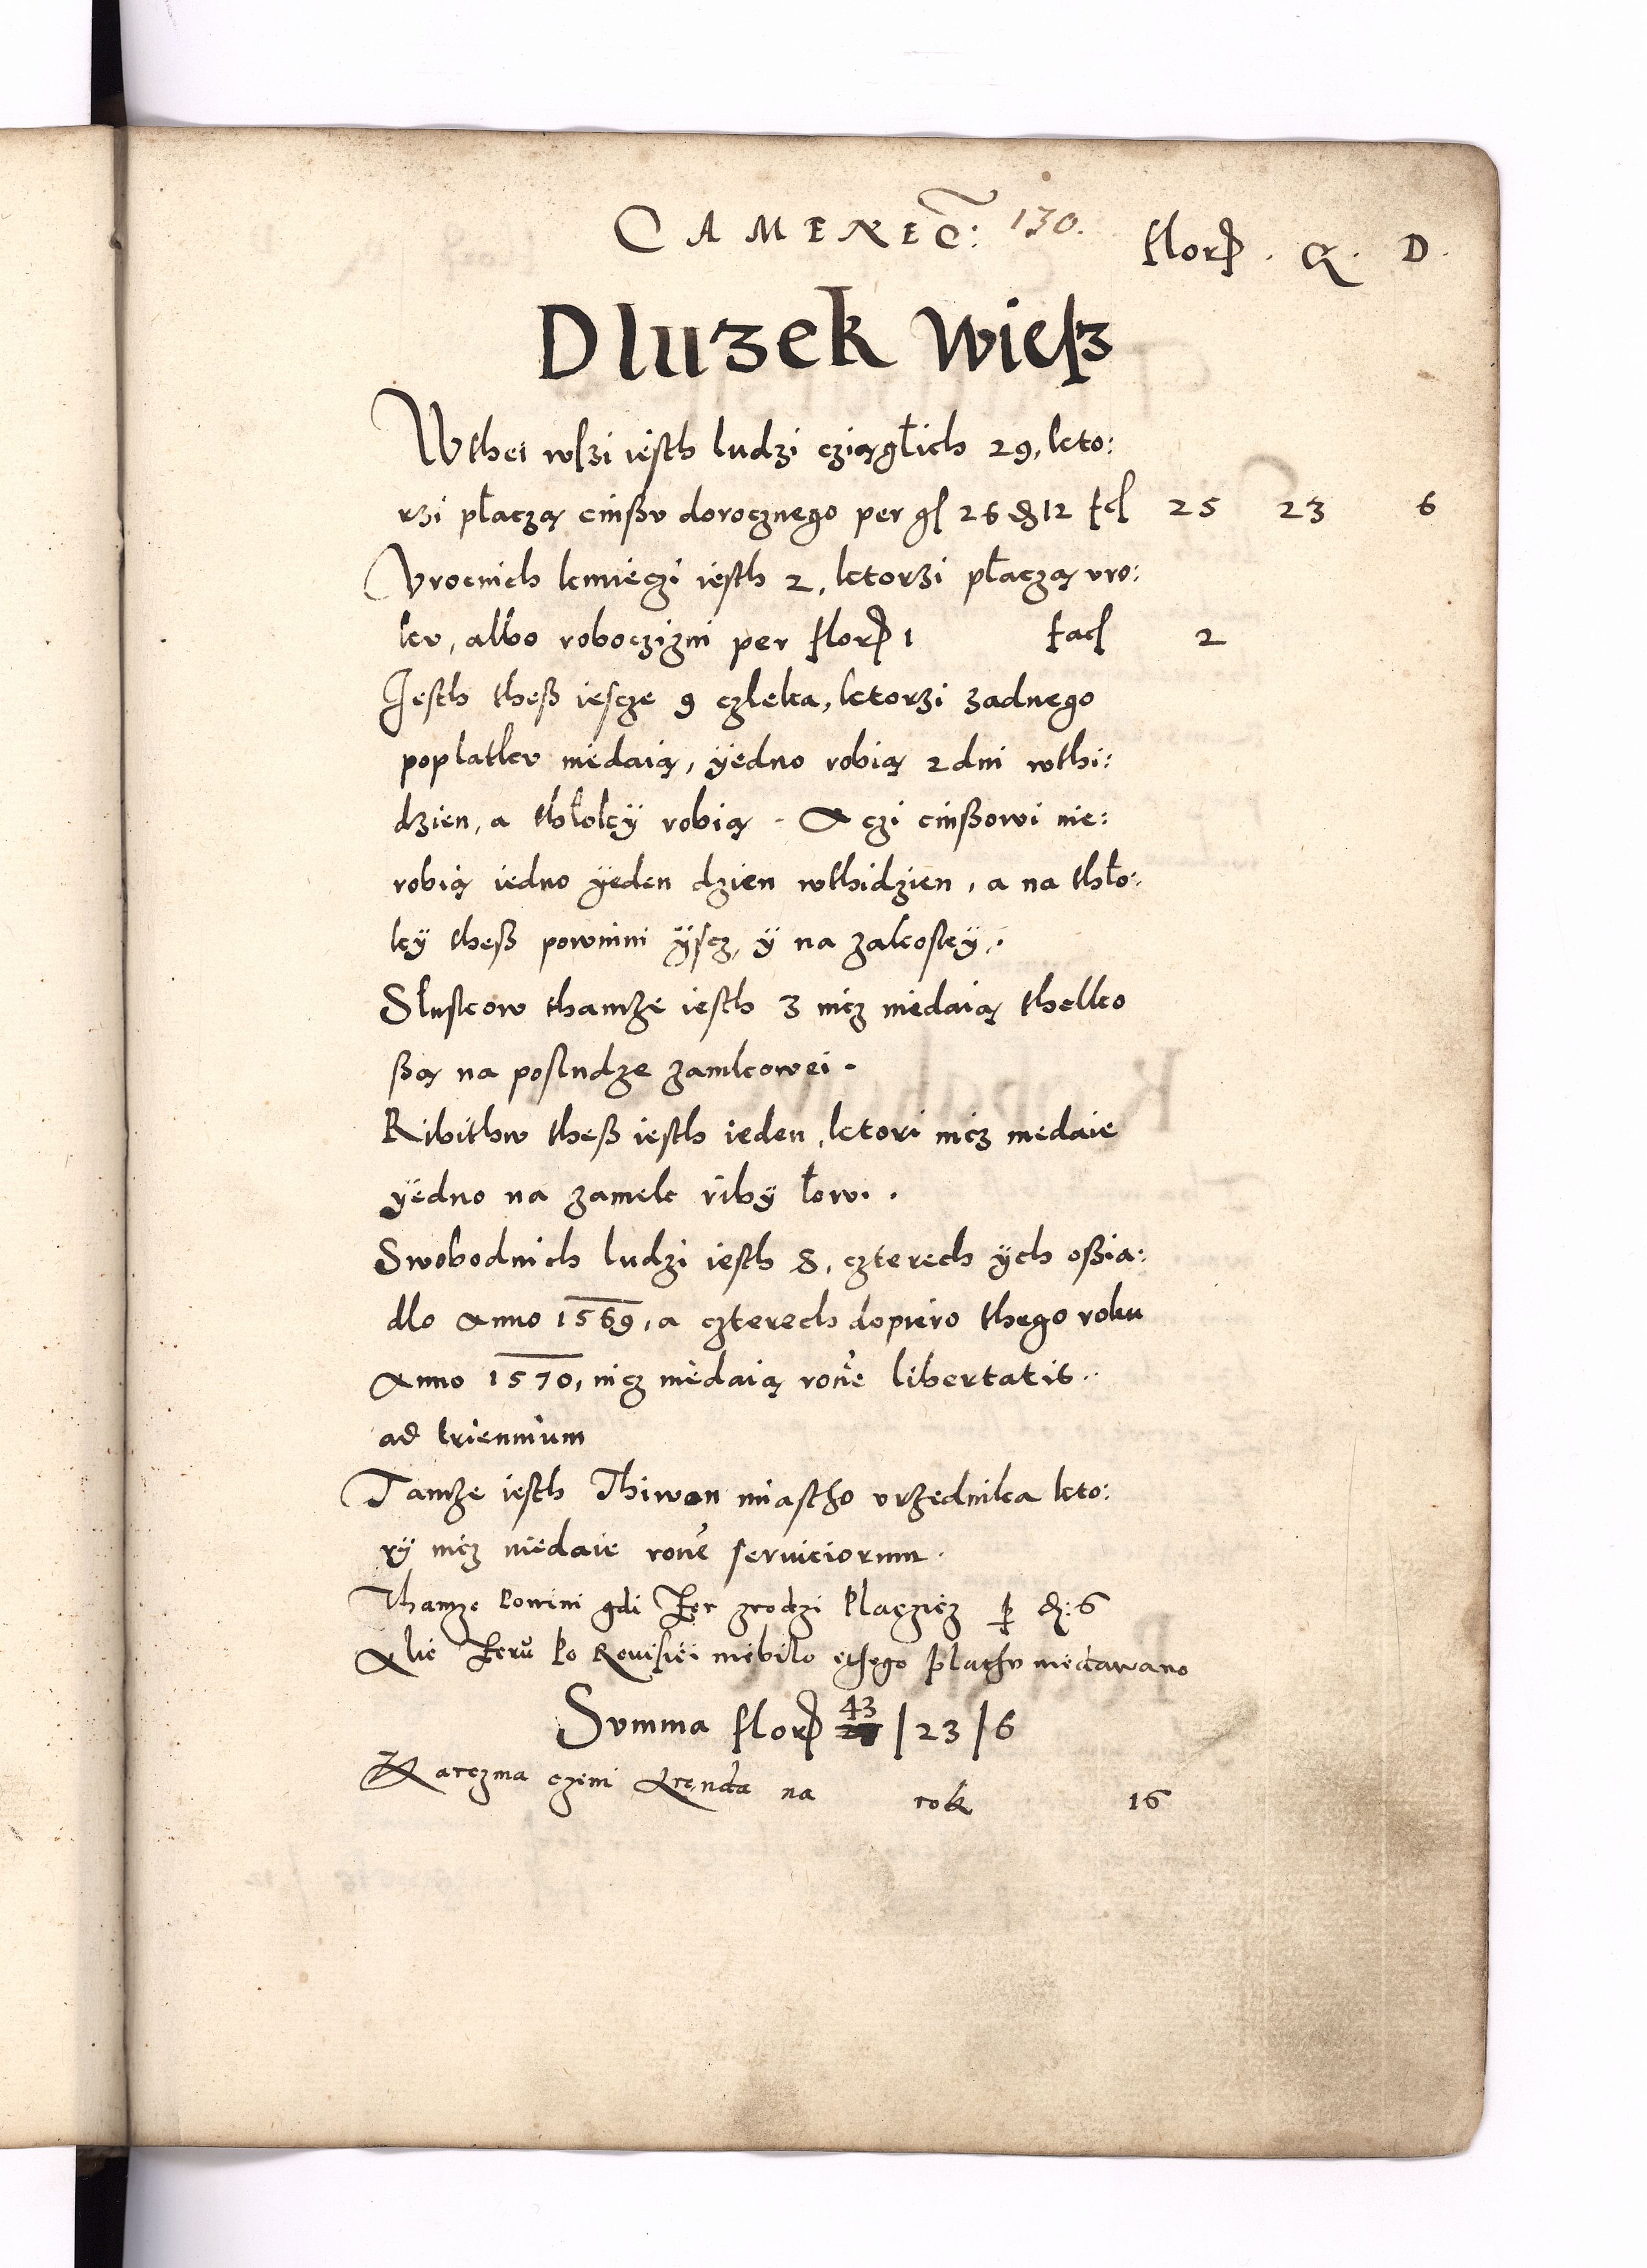 CAMENEC̃: 130. flor. G. D.
Dluzek wiesz
Wthei wszi iesth ludzi cziągłich 29, kto:
rzi płaczą cinßu dorocznego per gs 26 δ 12 fcs 25 23 6
Vrocnich kmieczi iesth 2, ktorzi płaczą vro:
kv, albo robocziżni per flor 1 facs 2
Jesth theß iescze 9 czleka, ktorzi żadnego
poplatkv niedaią, yedno robią 2 dni wthi:
dzien, a thłoky robią. A czi cinßowi nie:
robią iedno yeden dzien wthidzien, a na thło:
ky theß powinni yscz, y na zakosky.
Słuskow thamże iesth 3 nicz niedaią thelko
ßą na posludze zamkowei.
Ribithw theß iesth ieden, ktori nicz niedaie
yedno na zamek riby łowi.
Swobodnich ludzi iesth 8, czterech ych oßia:
dlo Anno 1569, a czterech dopiero thego roku
Anno 1570, nicz niedaią rone libertatis
ad triennium
Tamże iesth Thiwon miastho vrzednika kto:
ry nicz niedaie rone seruiciorum.
Thamze powini gdi Zer zrodzi placzicz per δ: 6
Alie Zeru po Reuisiei niebilo y thego plathu niedawano
Summa flor 43 | 23 | 6
Karczma czini Arenda na rok 16